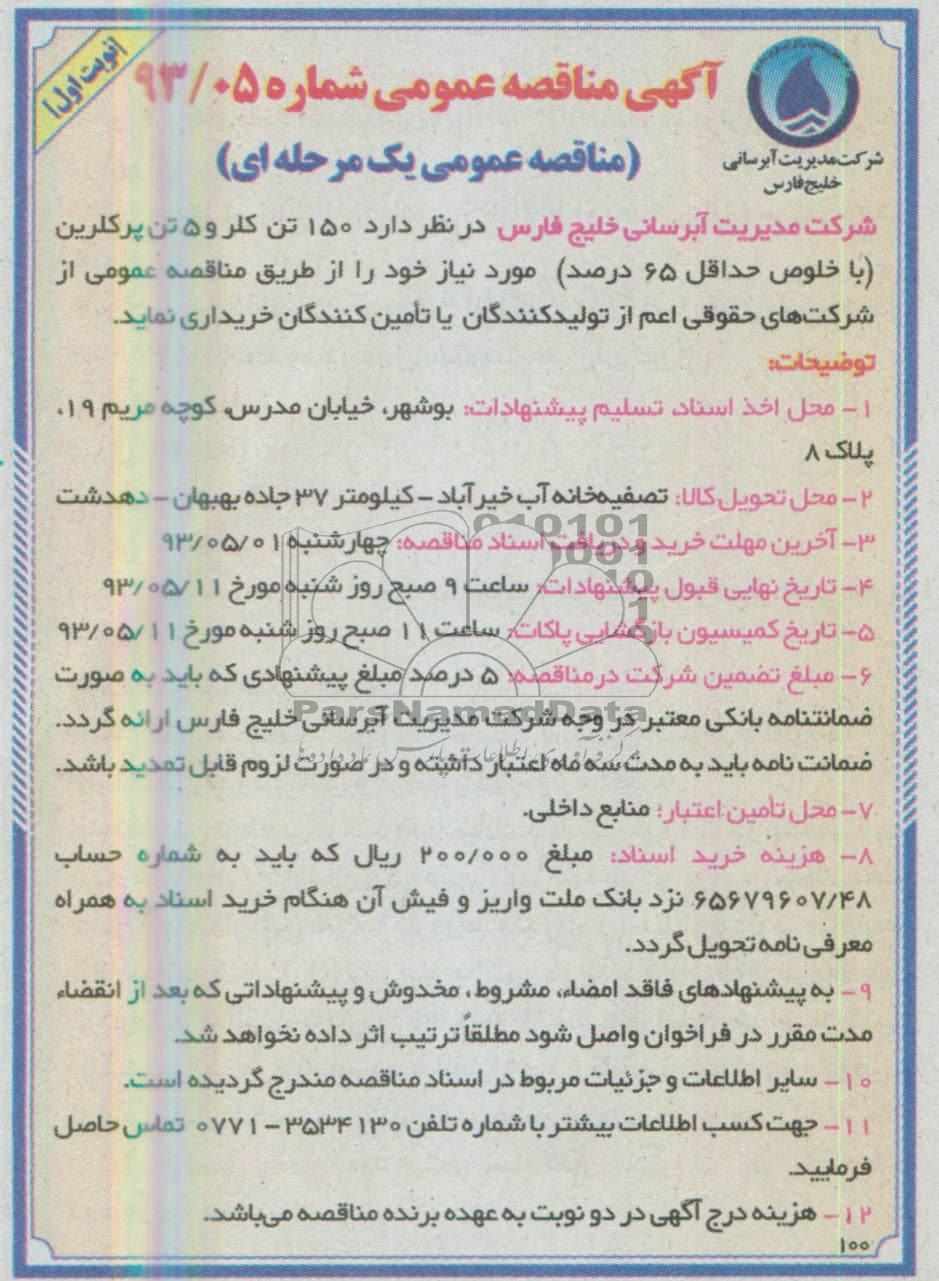 نوبت اول
آگهی مناقصه عمومی شماره ۹۳/۰۵
(مناقصه عمومی یک مرحله ای)
شرکت مدیریت آبرسانی
خلیج فارس
شرکت مدیریت آبرسانی خلیج فارس در نظر دارد ۱۵۰ تن کلر و ۵ تن پرکلرین
(با خلوص حداقل ۶۵ درصد) مورد نیاز خود را از طریق مناقصه عمومی از
شرکت‌های حقوقی اعم از تولیدکنندگان یا تأمین کنندگان خریداری نماید.
توضیحات:
۱- محل اخذ اسناد، تسلیم پیشنهادات: بوشهر، خیابان مدرس، کوچه مریم ۱۹،
پلاک ۸
۲- محل تحویل کالا: تصفیه‌خانه آب خیرآباد - کیلومتر ۳۷ جاده بهبهان - دهدشت
۳- آخرین مهلت خرید و دریافت اسناد مناقصه: چهارشنبه ۹۳/۰۵/۰۱
۴- تاریخ نهایی قبول پیشنهادات: ساعت ۹ صبح روز شنبه مورخ ۹۳/۰۵/۱۱
۵- تاریخ کمیسیون بازگشایی پاکات: ساعت ۱۱ صبح روز شنبه مورخ ۹۳/۰۵/۱۱
۶- مبلغ تضمین شرکت در مناقصه: ۵ درصد مبلغ پیشنهادی که باید به صورت
ضمانتنامه بانکی معتبر در وجه شرکت مدیریت آبرسانی خلیج فارس ارائه گردد.
ParsNamadData
ضمانت نامه باید به مدت سه ماه اعتبار داشته و در صورت لزوم قابل تمدید باشد.
۷- محل تأمین اعتبار: منابع داخلی.
۸- هزینه خرید اسناد: مبلغ ۲۰۰/۰۰۰ ریال که باید به شماره حساب
۶۵۶۷۹۶۰۷/۴۸ نزد بانک ملت واریز و فیش آن هنگام خرید اسناد به همراه
معرفی نامه تحویل گردد.
۹- به پیشنهادهای فاقد امضاء، مشروط، مخدوش و پیشنهاداتی که بعد از انقضاء
مدت مقرر در فراخوان واصل شود مطلقاً ترتیب اثر داده نخواهد شد.
۱۰- سایر اطلاعات و جزئیات مربوط در اسناد مناقصه مندرج گردیده است.
۱۱- جهت کسب اطلاعات بیشتر با شماره تلفن ۳۵۳۴۱۳۰-۰۷۷۱ تماس حاصل
فرمایید.
۱۲- هزینه درج آگهی در دو نوبت به عهده برنده مناقصه می‌باشد.
۱۰۰